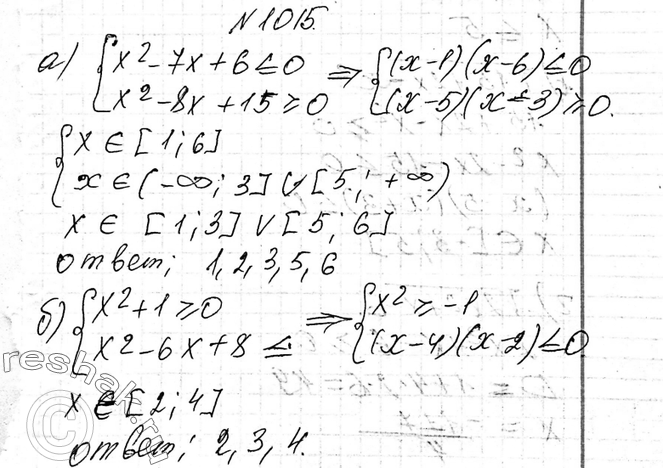 №1015.
а) { x² - 7x + 6 ≤ 0 ⇒ { (x-1)(x-6) ≤ 0
x² - 8x + 15 ≥ 0 (x-5)(x-3) ≥ 0.
{ x ∈ [1; 6]
x ∈ (-∞; 3] ∪ [5; +∞)
x ∈ [1; 3] ∪ [5; 6]
ответ; 1, 2, 3, 5, 6
б) { x² + 1 ≥ 0 ⇒ { x² ≥ -1
x² - 6x + 8 ≤ (x-4)(x-2) ≤ 0.
x ∈ [2; 4]
ответ; 2, 3, 4.
reshak.ru